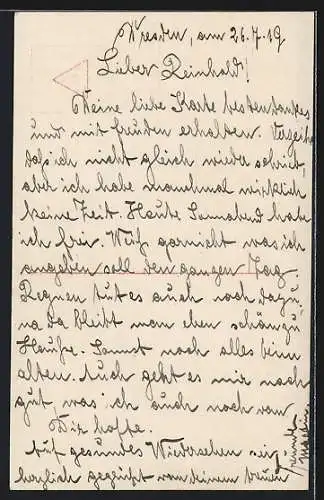 Dresden, am 26.7.19
Lieber Reinhold!
Deine liebe Karte bestendankes
und mit freuden erhalten. Verzeihe
daß ich nicht gleich wieder schrieb,
aber ich habe manchmal wirklich
keine Zeit. Haute Sonnabend habe
ich frei. Weiß garnicht was ich
angeben soll den ganzen Tag.
Regnen tut es auch noch dazu,
na da bleibt man eben schön zu
Hauße. Sonnst noch alles beim
alten. Auch geht es mir noch
gut, was ich auch noch von
Dir hoffe.
Auf gesundes Wiedersehen
herzlich gegrüßt von deinem